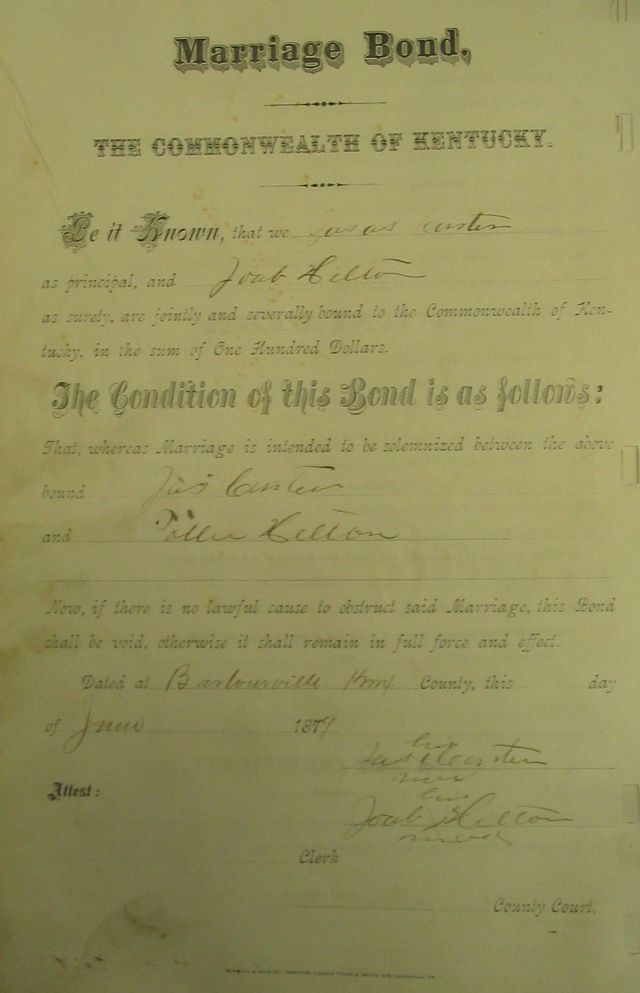 Marriage Bond,
THE COMMONWEALTH OF KENTUCKY.
Be it Known, that we
as principal, and Joab Helton
as surety, are jointly and severally bound to the Commonwealth of Ken-
tucky, in the sum of One Hundred Dollars.
The Condition of this Bond is as follows:
That, whereas Marriage is intended to be solemnized between the above
bound Jas
and Helton
Now, if there is no lawful cause to obstruct said Marriage, this Bond
shall be void, otherwise it shall remain in full force and effect.
Dated at Barbourville Knox County, this day
of June 1879
his
Jas
Attest:
his
Joab Helton
Clerk
County Court.